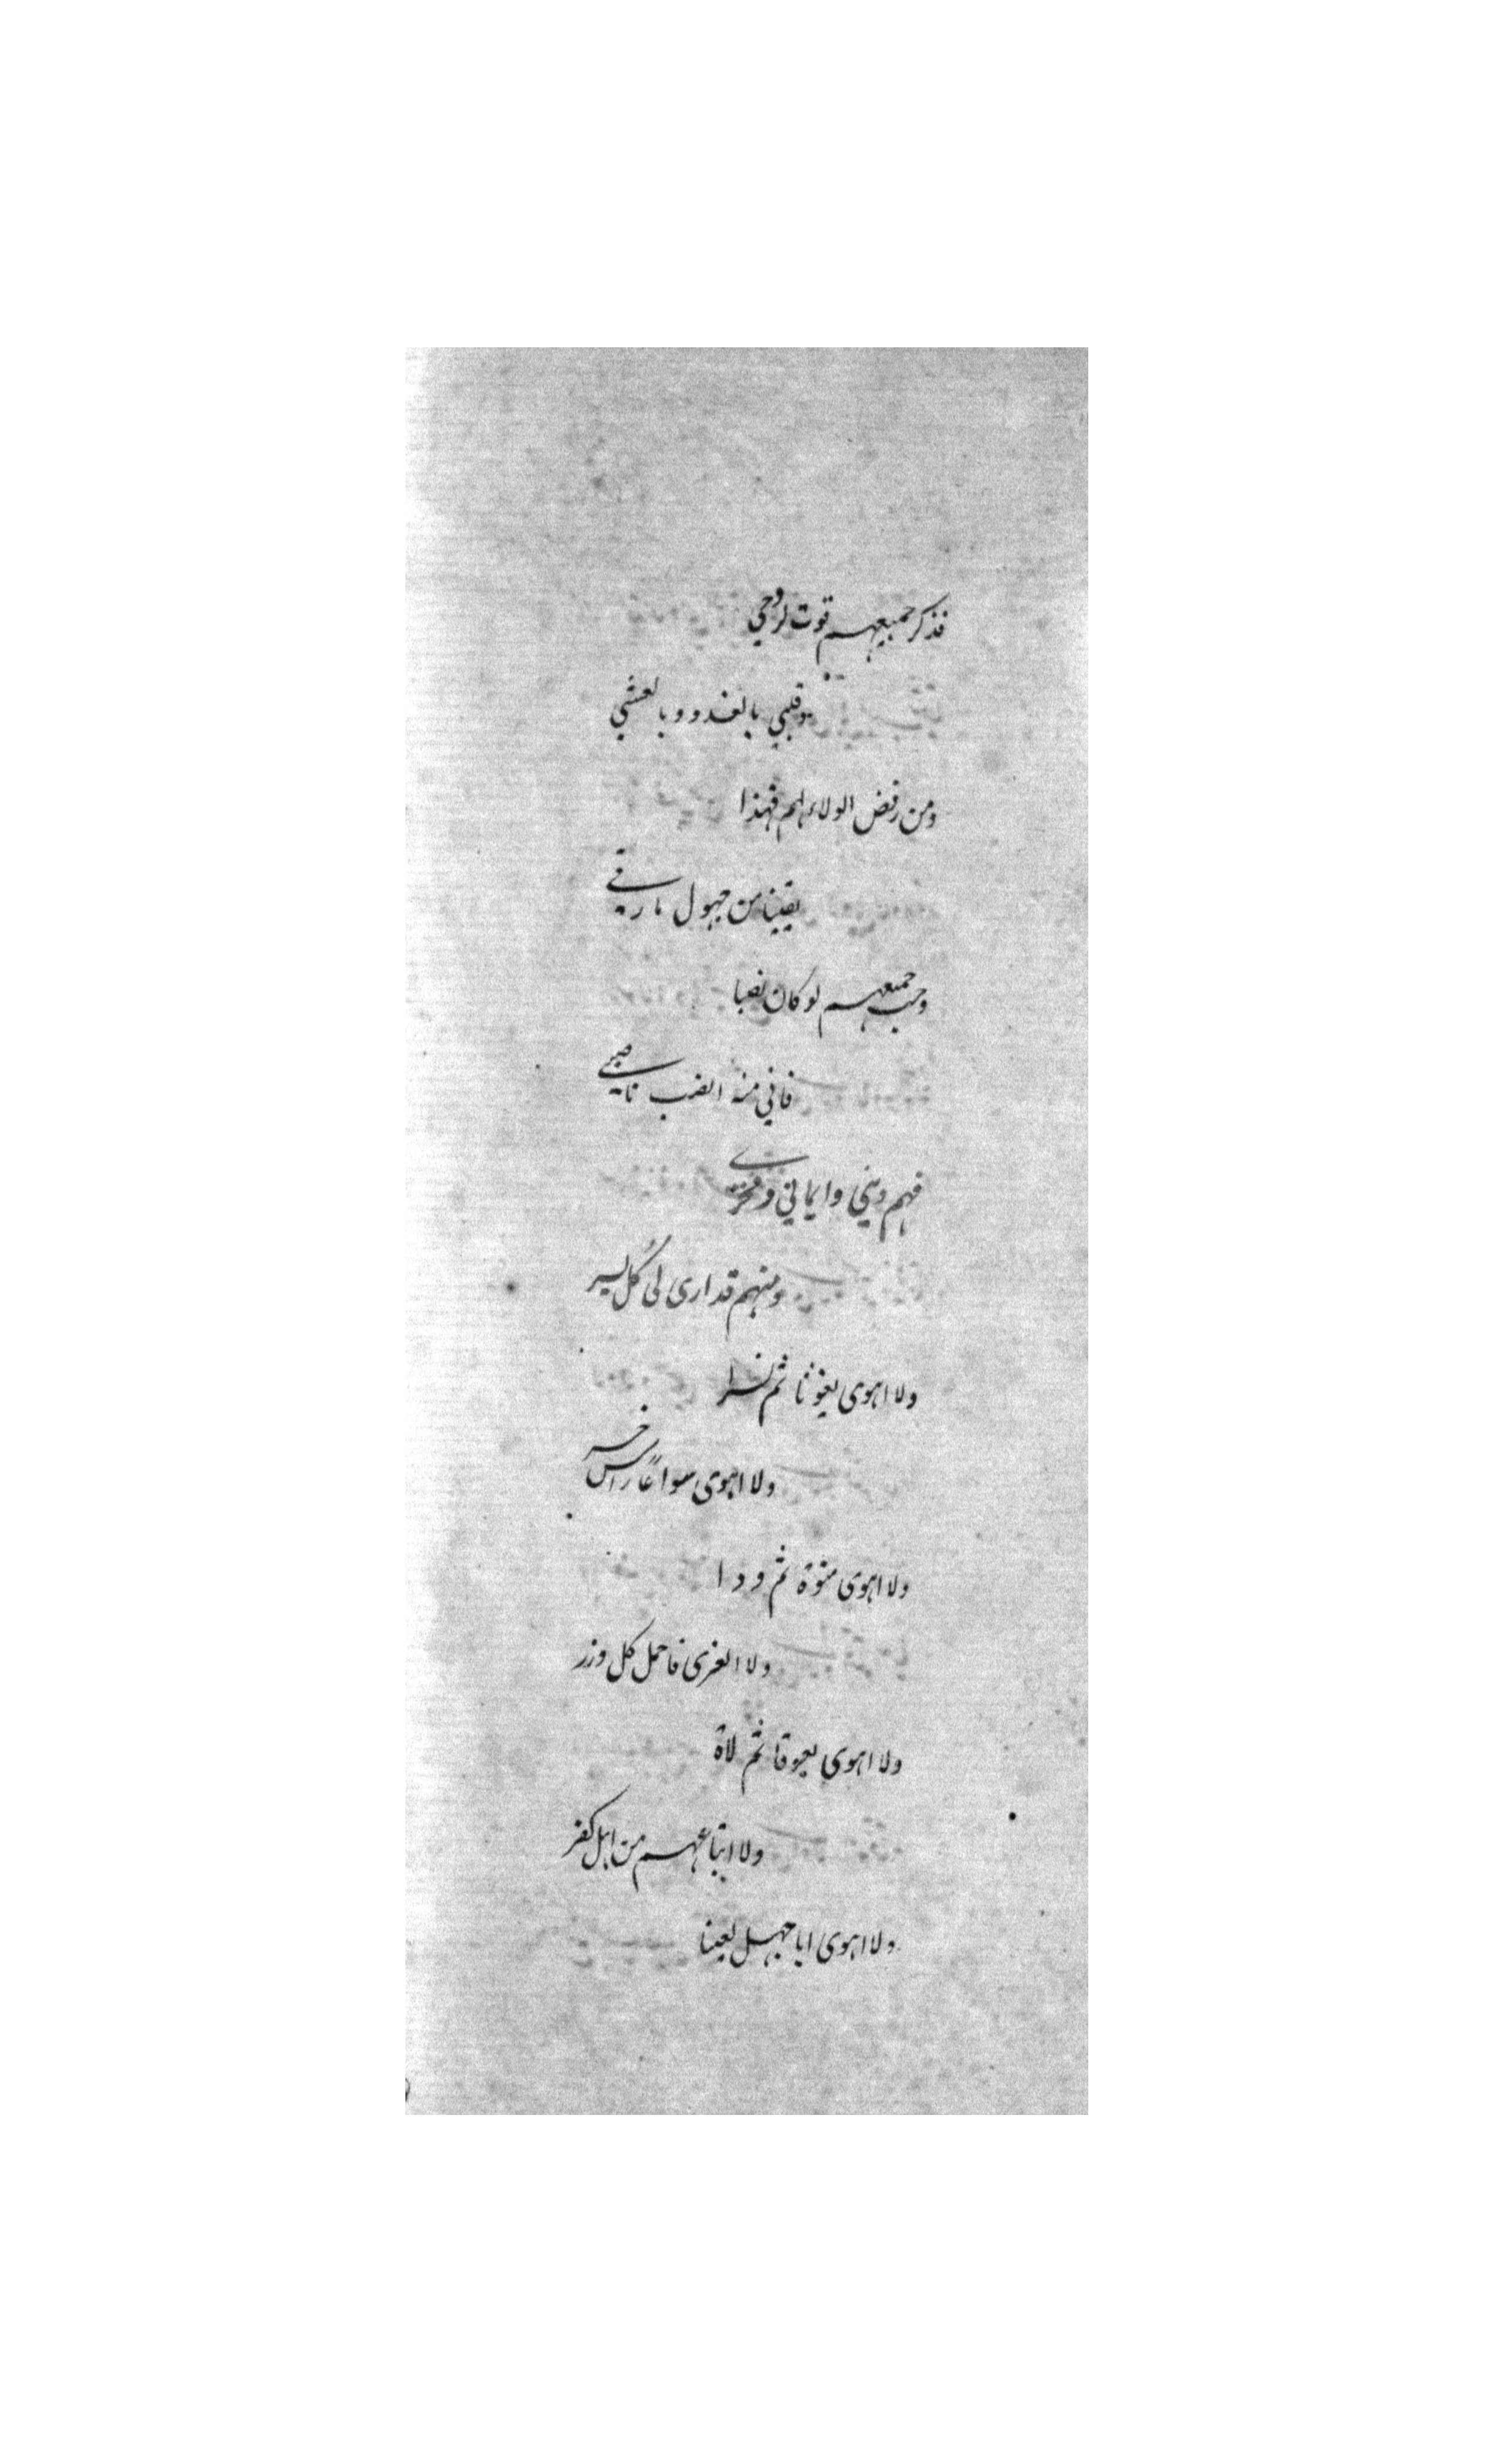 فذكر جميعهم قوت لروحي
وقلبي بالغدو وبالعشي
ومن رفض الولاء لهم فهذا
يقينا من جهول مارقي
وحب جميعهم لو كان نصبا
فاني منه انصب ناصبي
فهم ديني وايماني وفخري
ومنهم قد ارى لي كل يسر
ولا اهوى يغوثا ثم نسرا
ولا اهوى سواعًا راس خسر
ولا اهوى منوة ثم ودا
ولا العزى فاحمل كل وزر
ولا اهوى يعوقا ثم لاة
ولا اتباعهم من اهل كفر
ولا اهوى ابا جهل لعينا